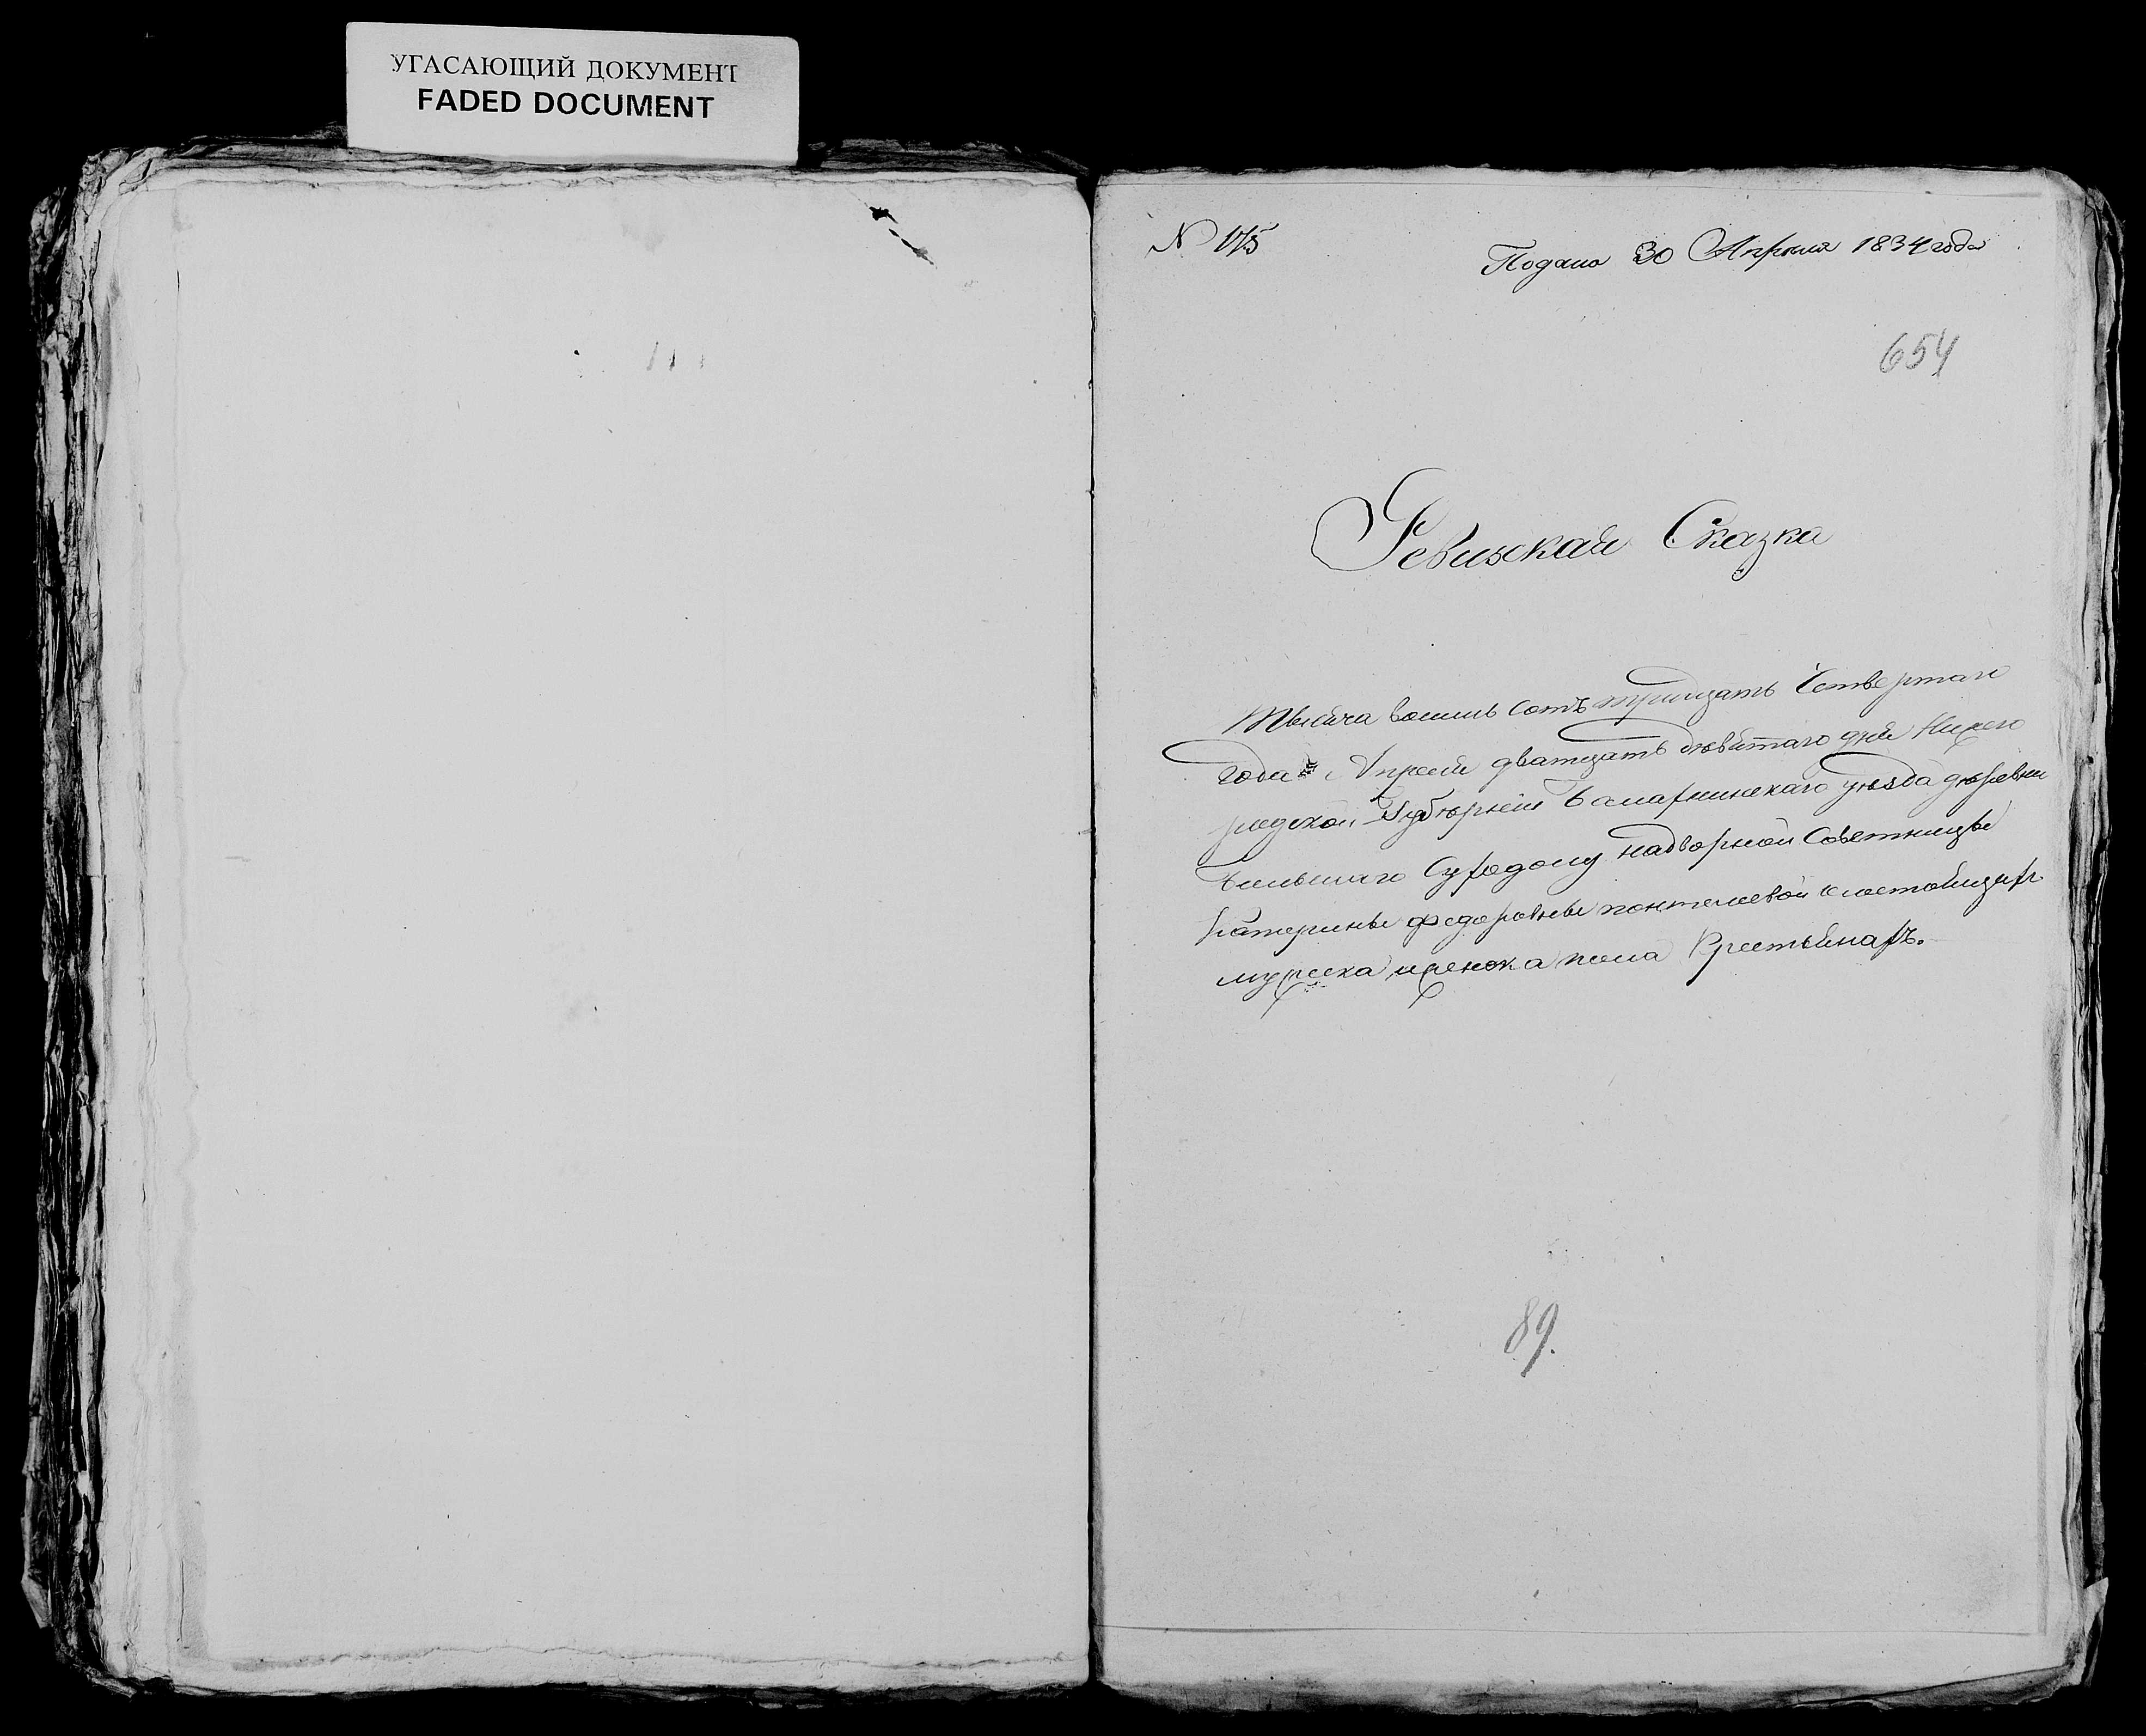 УГАСАЮЩИЙ ДОКУМЕНТ
FADED DOCUMENT
N 175
Подана 30 Апреля 1834 года
654
Ревиская Сказка
Тысяча восемь сотъ тридцать Четвертаго
года Апреля дватцать девятаго дня Нижего
родской Губернии уезда деревни
надворной Советницы
катерины федоровны состоящихъ
мужеска иженска пола Крестьянахъ.
89.